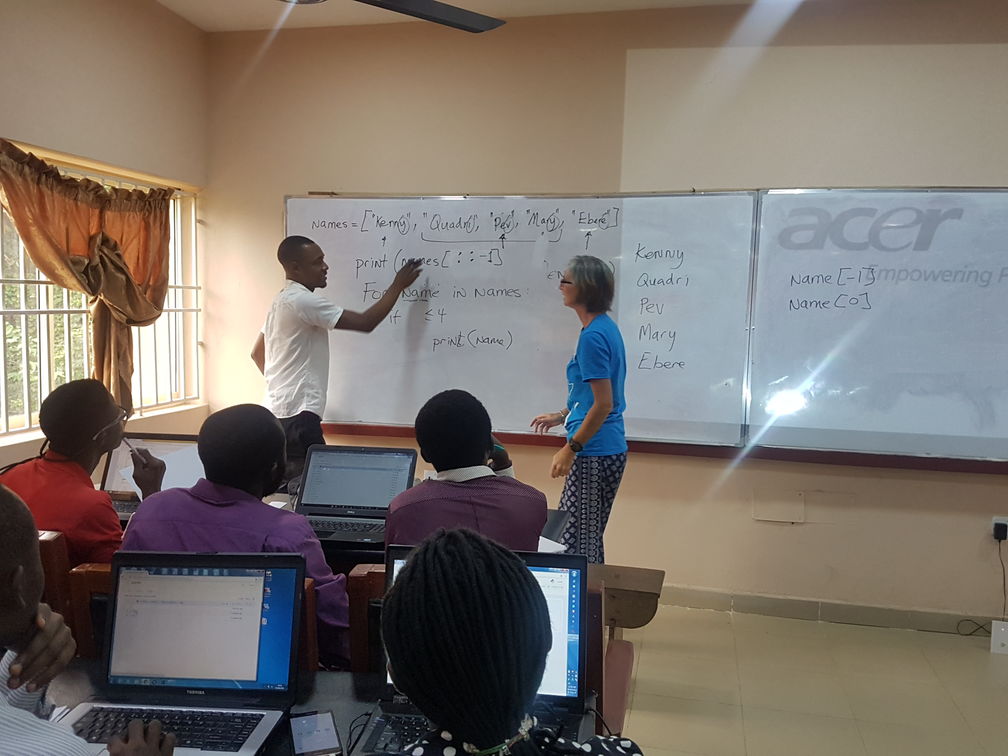 names = ["Kenny", "Quadri", "Pev", "Mary", "Ebere"]
print (names[ : : -1]
For name in names:
if ≤ 4
print(name)
Kenny
Quadri
Pev
Mary
Ebere
acer
Empowering P
Name[-1]
Name[0]
TOSHIBA